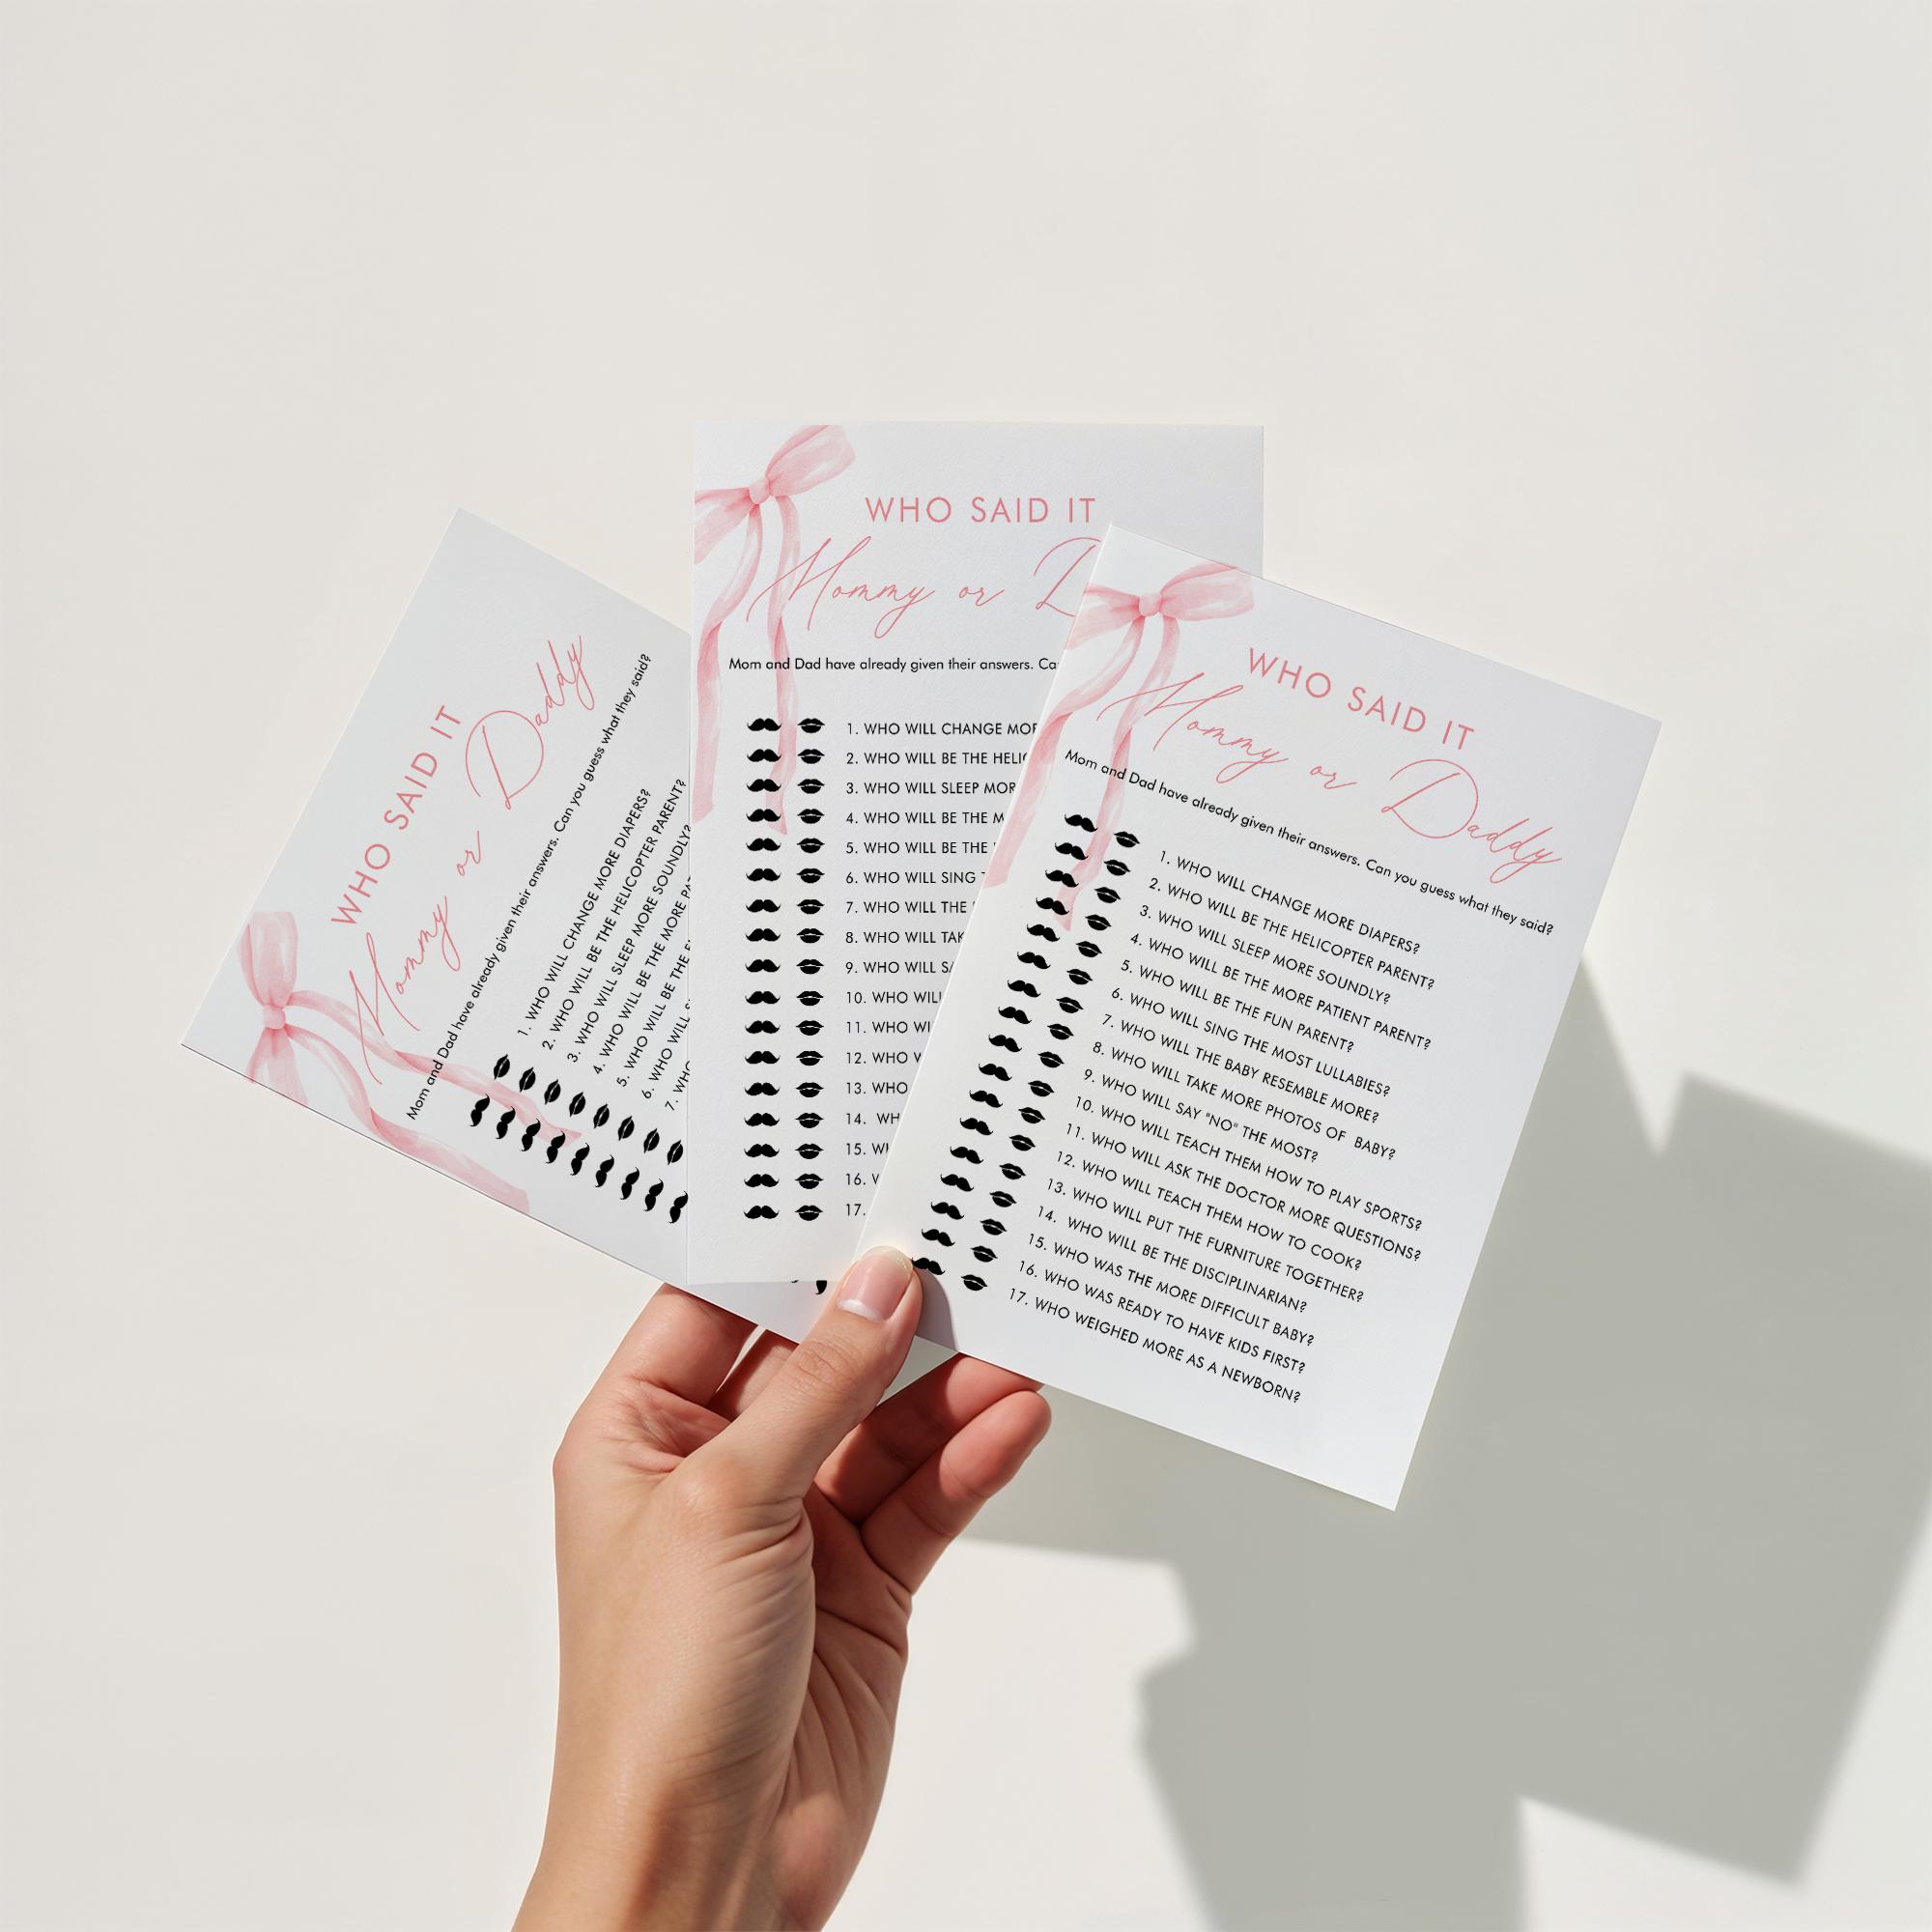 WHO SAID IT
Mommy or Daddy
Mom and Dad have already given their answers. Can you guess what they said?
1. WHO WILL CHANGE MORE DIAPERS?
2. WHO WILL BE THE HELICOPTER PARENT?
3. WHO WILL SLEEP MORE SOUNDLY?
4. WHO WILL BE THE MORE
5. WHO WILL BE THE
6. WHO WILL
7. WHO
WHO SAID IT
Mommy or
Mom and Dad have already given their answers.
1. WHO WILL CHANGE
2. WHO WILL BE THE
3. WHO WILL SLEEP
4. WHO WILL BE THE
5. WHO WILL BE THE
6. WHO WILL SING
7. WHO WILL THE
8. WHO WILL
9. WHO WILL
10. WHO
11. WHO
12. WHO
13. WHO
14.
15.
16.
17.
WHO SAID IT
Mommy or Daddy
Mom and Dad have already given their answers. Can you guess what they said?
1. WHO WILL CHANGE MORE DIAPERS?
2. WHO WILL BE THE HELICOPTER PARENT?
3. WHO WILL SLEEP MORE SOUNDLY?
4. WHO WILL BE THE MORE PATIENT PARENT?
5. WHO WILL BE THE FUN PARENT?
6. WHO WILL SING THE MOST LULLABIES?
7. WHO WILL THE BABY RESEMBLE MORE?
8. WHO WILL TAKE MORE PHOTOS OF BABY?
9. WHO WILL SAY "NO" THE MOST?
10. WHO WILL TEACH THEM HOW TO PLAY SPORTS?
11. WHO WILL ASK THE DOCTOR MORE QUESTIONS?
12. WHO WILL TEACH THEM HOW TO COOK?
13. WHO WILL PUT THE FURNITURE TOGETHER?
14. WHO WILL BE THE DISCIPLINARIAN?
15. WHO WAS THE MORE DIFFICULT BABY?
16. WHO WAS READY TO HAVE KIDS FIRST?
17. WHO WEIGHED MORE AS A NEWBORN?